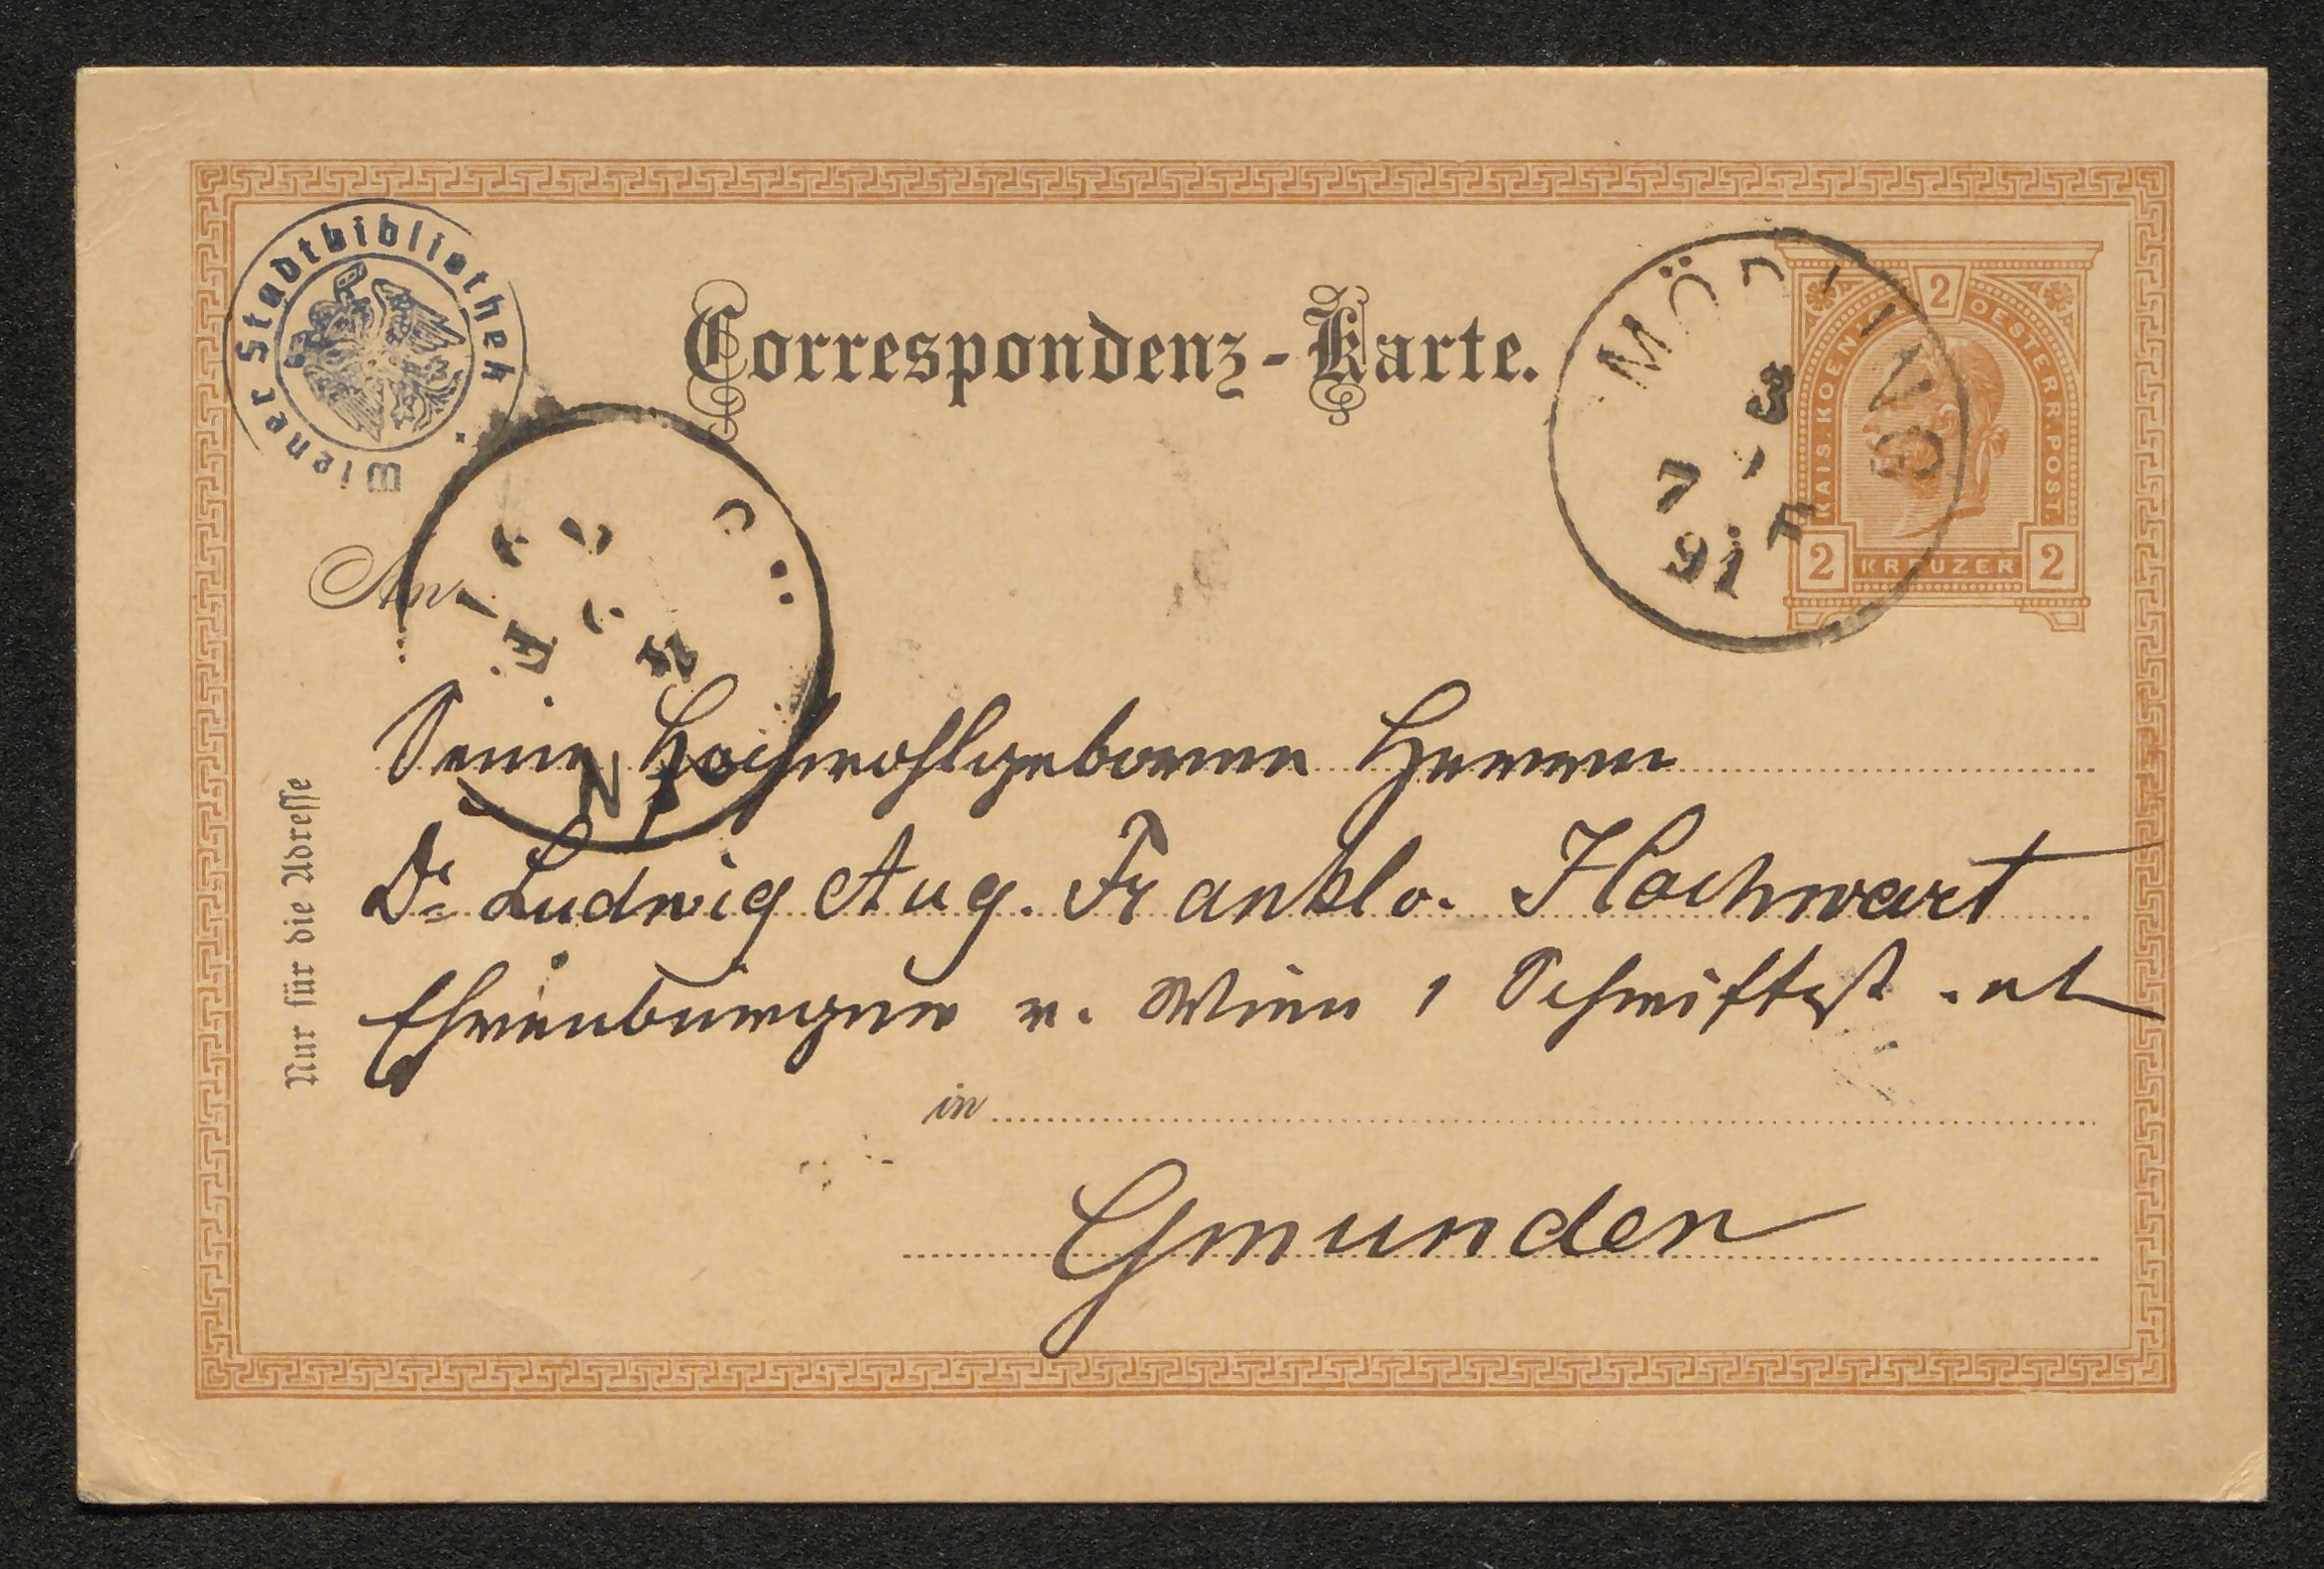 Wiener Stadtbibliothek
Correspondenz-Karte.
MÖDLING
3
7
91
F
2
KAIS. KOENIGL. OESTERR. POST.
2 KREUZER 2
An
Seine Hochwohlgeboren Herrn
Dr Ludwig Aug. Frankl v. Hochwart
Ehrenbürger v. Wien, Schriftst.
Nur für die Adresse
in
Gmunden